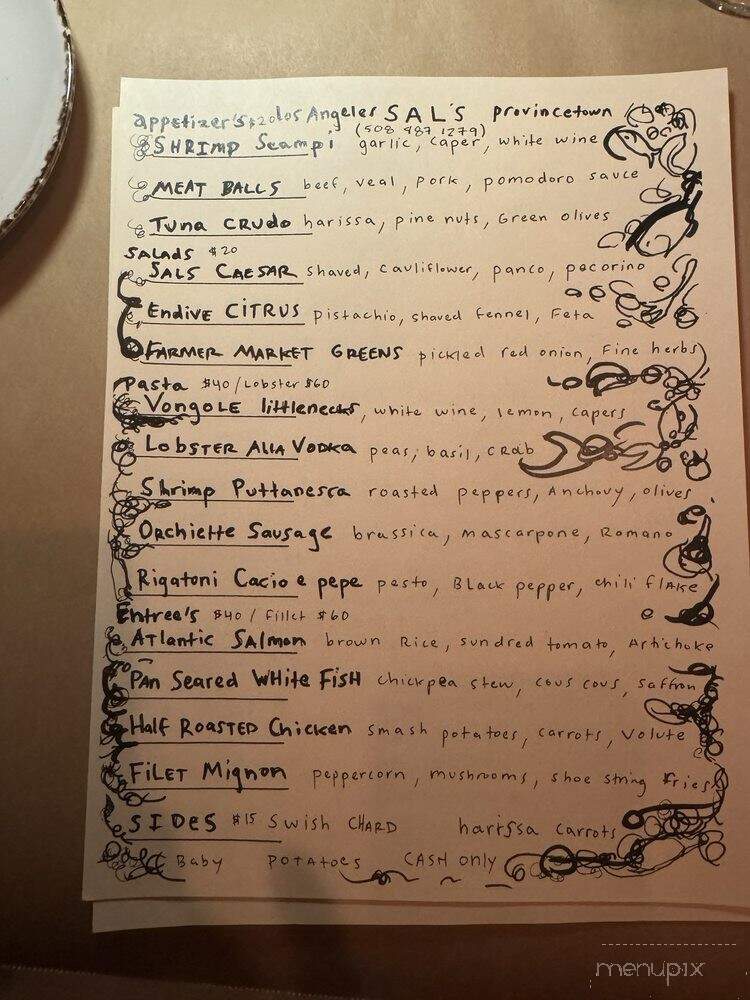 appetizer's $20 Los Angeles SAL'S provincetown
(508 487 1279)
SHRIMP Scampi garlic, caper, white wine
MEAT BALLS beef, veal, pork, pomodoro sauce
Tuna CRUDO harissa, pine nuts, Green olives
SALADS $20
SALS CAESAR shaved, cauliflower, panco, pecorino
Endive CiTRUS pistachio, shaved fennel, Feta
FARMER MARKET GREENS pickled red onion, Fine herbs
Pasta $40/Lobster $60
Vongole littlenecks, white wine, lemon, capers
LOBSTER ALLA VODKA peas, basil, CRAb
Shrimp Puttanesca roasted peppers, Anchovy, olives
Orchiette Sausage brassica, mascarpone, Romano
Rigatoni Cacio e pepe pesto, Black pepper, chili flake
Entree's $40 / Fillet $60
ATLANTIC SALMON brown Rice, sundred tomato, Artichoke
PAN Seared WHite FiSH chickpea stew, cous cous, saffron
Half ROASTED Chicken smash potatoes, carrots, Volute
FiLET Mignon peppercorn, mushrooms, shoe string fries
SIDES $15 Swish CHARD harissa carrots
Baby POTATOES CASH only
menupix